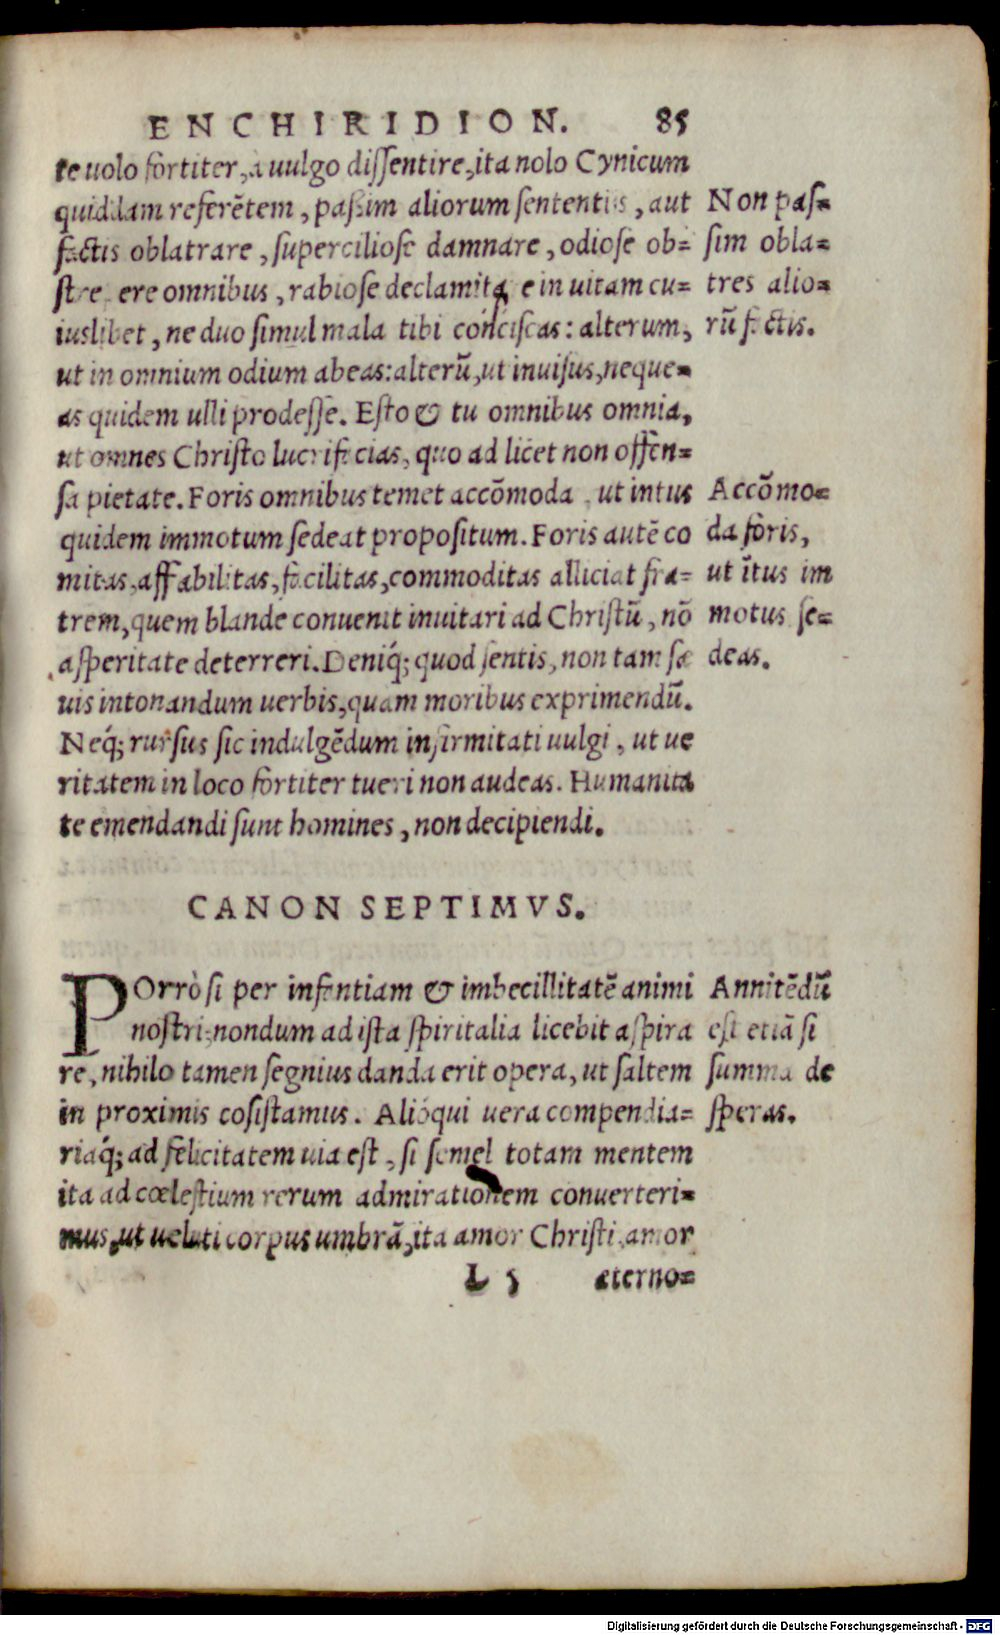 ENCHIRIDION. 85
te uolo fortiter, à uulgo dissentire, ita nolo Cynicum
quiddam referētem, passim aliorum sententiis, aut
factis oblatrare, superciliose damnare, odiose ob=
strepere omnibus, rabiose declamitare in uitam cu=
iuslibet, ne duo simul mala tibi cōciscas: alterum,
ut in omnium odium abeas: alterū, ut inuisus, neque=
as quidem ulli prodesse. Esto & tu omnibus omnia,
ut omnes Christo lucrifacias, quo ad licet non offen=
sa pietate. Foris omnibus temet accōmoda, ut intus
quidem immotum sedeat propositum. Foris autē co
mitas, affabilitas, facilitas, commoditas alliciat fra=
trem, quem blande conuenit inuitari ad Christū, nō
asperitate deterreri. Deniq́; quod sentis, non tam sæ
uis intonandum uerbis, quam moribus exprimendū.
Neq́; rursus sic indulgēdum infirmitati uulgi, ut ue
ritatem in loco fortiter tueri non audeas. Humanita
te emendandi sunt homines, non decipiendi.
Non pas=
sim obla=
tres alio=
rū factis.
Accōmo=
da foris,
ut ītus im
motus se=
deas.
CANON SEPTIMVS.
POrrò si per infantiam & imbecillitatē animi
nostri, nondum ad ista spiritalia licebit aspira
re, nihilo tamen segnius danda erit opera, ut saltem
in proximis cōsistamus. Alióqui uera compendia=
riaq́; ad felicitatem uia est, si semel totam mentem
ita ad cœlestium rerum admirationem conuerteri=
mus, ut ueluti corpus umbrā, ita amor Christi, amor
Annitēdū
est etiā si
summa de
speras.
L 5 æterno=
Digitalisierung gefördert durch die Deutsche Forschungsgemeinschaft - DFG